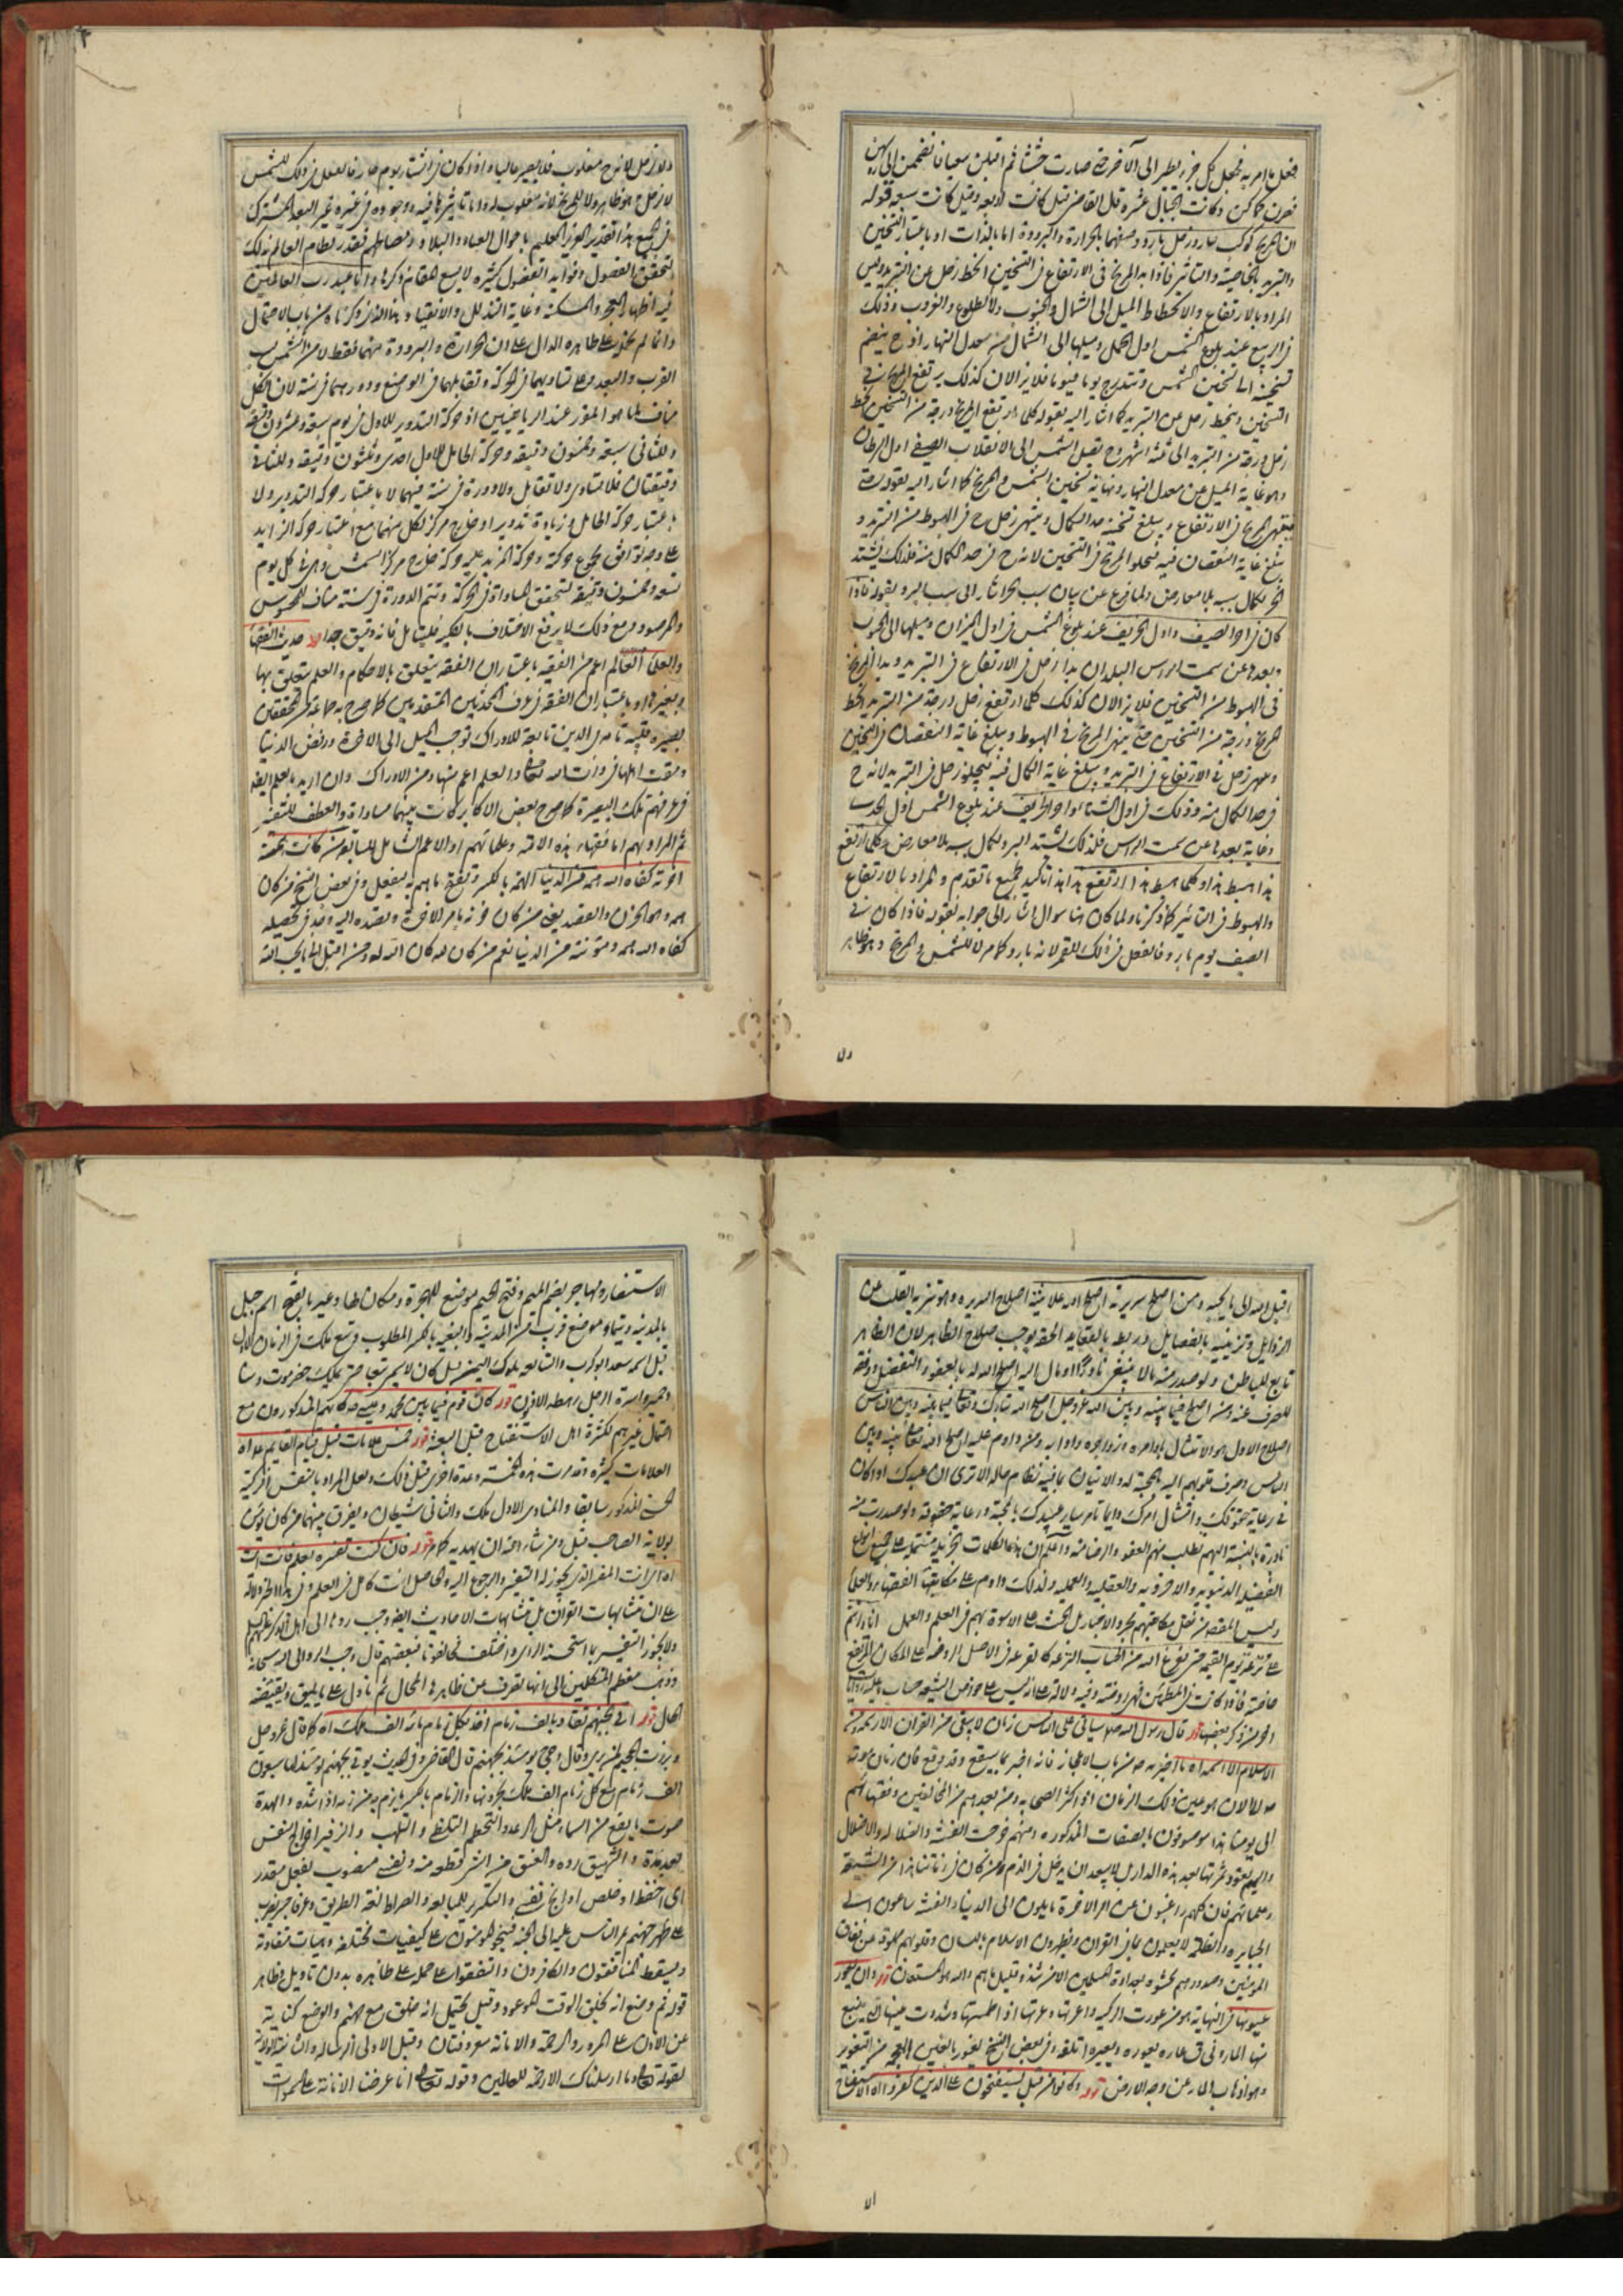 فجعل كل جزء يطير الى الآخر حتى صارت جثثا ثم اقبلن سعيا
وكانت الجبال عشرة قال القاضي قيل كانت اربعة وقيل كانت سبعة قوله
ان المريخ كوكب حار وزحل بارد وصفهما بالحرارة والبرودة اما بالذات او باعتبار التسخين
والتبريد بالخاصية والتاثير فاذا بدا المريخ في الارتفاع في التسخين انحط زحل عن التبريد وليس
المراد بالارتفاع والانحطاط الميل الى الشمال والجنوب ولا الطلوع والغروب وذلك
في الربيع عند بلوغ الشمس اول الحمل وميلها الى الشمال من معدل النهار اذ ح ينضم
تسخينه الى تسخين الشمس وتتدرج يوما فيوما فلا يزالان كذلك يرتفع المريخ في
التسخين وينحط زحل عن التبريد كما اشار اليه بقوله كلما ارتفع المريخ درجة من التسخين انحط
زحل درجة من التبريد الى ثلثة اشهر وح تصل الشمس الى الانقلاب الصيفي اول السرطان
وهو غاية الميل عن معدل النهار ونهاية تسخين الشمس والمريخ كما اشار اليه بقوله حتى
ينتهي المريخ في الارتفاع ويبلغ تسخينه حد الكمال وينتهي زحل ح في الهبوط من التبريد و
يبلغ غاية النقصان فيه فيجلو المريخ في التسخين لانه ح في حد الكمال منه فلذلك يشتد
الحر لكمال سببه بلا معارض ولما فرغ عن بيان سبب الحر اشار الى سبب البرد بقوله فاذا
كان في اخر الصيف واول الخريف عند بلوغ الشمس في اول الميزان وميلها الى الجنوب
وبعدها عن سمت الرس البلدان بدا زحل في الارتفاع في التبريد وبدا المريخ
في الهبوط من التسخين فلا يزالان كذلك كلما ارتفع زحل درجة من التبريد انحط
المريخ درجة من التسخين حتى ينتهي المريخ في الهبوط ويبلغ غاية النقصان في التسخين
وينتهي زحل في الارتفاع في التبريد ويبلغ غاية الكمال فيه فيجلو زحل في التبريد لانه ح
في حد الكمال منه وذلك في اول الشتاء واخر الخريف عند بلوغ الشمس اول الجدي
وغاية بعدها عن سمت الراس فلذلك يشتد البرد لكمال سببه بلا معارض وكلما ارتفع
هذا هبط هذا وكلما هبط هذا ارتفع هذا هذا تاكيد لجميع ما تقدم والمراد بالارتفاع
والهبوط في التاثير كما ذكرنا ولما كان هنا سوال اشار الى جوابه بقوله فاذا كان في
الصيف يوم بارد فالفعل في ذلك للقمر لانه بارد كما مر لا للشمس والمريخ وهو ظاهر
ولا
ولا زحل لانه ح مغلوب فلا يصير غالبا واذا كان في الشتاء يوم حار فالفعل في ذلك للشمس
لا زحل ح وهو ظاهر ولا للمريخ لانه مغلوب
في الجميع هذا تقدير العزيز العليم باحوال العباد والبلاد ومصالحهم فقدر نظام العالم بذلك
كثيرة لا يسع المقام ذكرها وانا عبد رب العالمين
فيه اظهار العجز والمسكنة وغاية التذلل والانقياد
وانما لم على ظاهره الدال على ان الحرارة والبرودة منهما فقط لا من الشمس
القرب والبعد وعلى تساويهما في الحركة وتقابلهما في الوضع ودورهما في سنة لان الكل
مناف لما هو المقرر عند الرياضيين اذ حركة التدوير للاول في يوم سبعة وعشرون دقيقة
وللثاني سبعة وخمسون دقيقة وحركة الحامل للاول احدى وثلثون دقيقة وللثاني
دقيقتان فلا تساوي ولا تقابل ولا دورة في سنة فيهما لا باعتبار حركة التدوير ولا
باعتبار حركة الحامل وزيادة تدوير او خارج مركز لكل منهما مع اعتبار حركة الزايد
على وجه يوافق مجموع حركته وحركة المزيد عليه حركة خارج مركز الشمس وهي في كل يوم
تسعة وخمسون دقيقة لتحقق المساواة في الحركة وتتم الدورة في سنة مناف للمحسوس
والمرصود ومع ذلك لا يرفع الاختلاف بالكلية فليتامل فانه دقيق جدا قوله حديث الفقهاء
والعلماء العالم اعم من الفقيه باعتبار ان الفقه يتعلق بالاحكام والعلم يتعلق بها
وبغيرها او باعتبار ان الفقه في عرف المحدثين المتقدمين كما صرح به جماعة من المحققين
بصيرة قلبية تامة في الدين تابعة للادراك توجب الميل الى الاخرة ورفض الدنيا
ومقت اهلها في ذات الله تعالى والعلم اعم منها ومن الادراك وان اريد بالعلم ايضا
في عرفهم تلك البصيرة كما صرح بعض الاكابر كانت بينهما مساواة والعطف للتفسير
ثم المراد بهم اما فقهاء هذه الامة وعلمائهم او الاعم الشامل للسابق من كانت همته
اخرته كفاه الله همه من الدنيا الهمة بالكسر وتفتح ما هم به ليفعل وفي بعض النسخ من كان
همه وهو الحزن والقصد يعني من كان حزنه بامر الاخرة وقصده اليه وجد في تحصيله
كفاه الله همه ومؤنته من الدنيا نعم من كان لله كان الله له ومن اقبل الى ما يحب الله
اقبل الله الى ما يحبه ومن اصلح سريرته اصلح الله علانيته اصلاح السريرة وهو تنزيه القلب عن
الرذايل وتزيينه بالفضايل وربطه بالعقايد الحقة يوجب صلاح الظاهر لان الظاهر
تابع للباطن ولو صدر منه ما لا ينبغي نادرا او مال اليه اصلح الله له بالعفو والتفضل ووفقه
للصرف عنه ومن اصلح فيما بينه وبين الله عز وجل اصلح الله تبارك وتعالى فيما بينه وبين الناس
اصلاح الاول هو الامتثال باوامره وزواجره وادابه ومن داوم عليه اصلح الله تعالى بينه وبين
الناس وصرف قلوبهم اليه بالمحبة له والاتيان بما فيه نظام حاله الا ترى ان عبدك اذا كان
في رعاية حقوقك وامتثال امرك دايما تامر ساير عبيدك بالمحبة ورعاية حقوقه ولو صدرت منه
نادرة بالنسبة اليهم تطلب منهم العفو والرضا عنه واعلم ان هذه الكلمات الجزيلة مشتملة على جميع انواع
الفضيلة الدنيوية والاخروية والعقلية والعملية ولذلك داوم على مكاتبتها الفقهاء والعلماء
وليس المقصود من نقل مكاتبتهم مجرد الاخبار بل الحث على الاسوة بهم في العلم والعمل
قال رسول الله صلى سياتي على الناس زمان لا يبقى من القرآن الا رسمه ومن
الاسلام الا اسمه اه ما اخبر به ص من باب الاعجاز فانه اخبر بما سيقع وقد وقع فان زمان موته
ص الى الان هو عين ذلك الزمان اذ اكثر الصحابة ومن بعدهم من المخالفين وفقهائهم
الى يومنا هذا موصوفون بالصفات المذكورة ومنهم خرجت الفتنة والضلالة والاضلال
واليهم تعود ثمرتها بعد هذه الدار بل لا يبعد ان يدخل في الذم من كان في زماننا هذا من الشيعة
وعلمائهم فان كلهم راغبون عن امر الاخرة مايلون الى الدنيا والفتنة ساعون الى
الجبابرة والظلمة لا يعلمون بما في القرآن ويظهرون الاسلام باللسان وقلوبهم مملوة من نفاق
المؤمنين وصدورهم محشوة بعداوة المسلمين الا من شذ وقليل ما هم والله المستعان قوله وان يعور
عيونها في النهاية هو من عورت الركية واعرتها وعرتها اذا طممتها وسددت عينها التي ينبع
منها الماء وفي ق عاره يعوره ويعيره اتلفه وفي بعض النسخ يغور بالغين المعجمة من التغوير
وهو اذهاب الماء عن وجه الارض قوله وكانوا من قبل يستفتحون على الذين كفروا اه الاستفتاح
الا
الاستنصار ومهاجر بضم الميم وفتح الجيم موضع للهجرة ومكان لها وعير بالفتح اسم جبل
بالمدينة وتيماء موضع قرب من المدينة والبغية بالكسر المطلوب وتبع ملك في الزمان الاول
قيل اسمه سعد ابو كرب والتبابعة ملوك اليمن قيل كان لا يسمى تبعا حتى يملك حضرموت وسبا
وحمير واسرة الرجل رهطه الادنون قوله كان قوم فيما بين محمد وعيسى ص كانهم المذكورون مع
احتمال غيرهم لكثرة اهل الاستفتاح قبل البعثة قوله خمس علامات قبل قيام القايم ع اه
العلامات كثيرة وقد مرت هذه الخمسة وعدة اخرى قبل ذلك ولعل المراد بالنفس الزكية
الحسني المذكور سابقا والمنادي الاول ملك والثاني شيطان ويفرق بينهما من كان يؤمن
بولاية الصاحب قبل ومن شاء الله ان يهديه كما مر قوله فان كنت تفسره بعلم فانت انت
اه اي انت المفسر الذي يجوز له التفسير والرجوع اليه والحاصل انت كامل في العلم وفي هذا الخبر دلالة
على ان متشابهات القرآن بل متشابهات الاحاديث ايضا وجب ردها الى اهل الذكر عليهم السلام
ولا يجوز التفسير بما استحسنه الراي واختلف مخالفونا فبعضهم قال وجب الرد الى الله سبحانه
وذهب معظم المتكلمين الى انها تصرف عن ظاهرها المحال ثم تاول على ما يليق ويقتضيه
الحال قوله اتي بجهنم تقاد بالف زمام اخذ بكل زمام مائة الف ملك اه كما قال عز وجل
وبرزت الجحيم لمن يرى وقال وجيء يومئذ بجهنم قال القاضي وفي الحديث يؤتى بجهنم يومئذ لها سبعون
الف زمام مع كل زمام سبعون الف ملك يجرونها والزمام بالكسر ما يزم به من زمه اذا شده والهدة
صوت ما يقع من السماء مثل الرعد والتحطم التلظي والتلهب والزفير اخراج النفس
بعد مدة والشهيق رده والعنق من النار قطعة منه ونفسي منصوب بفعل مقدر
اي احفظ او خلص او انج نفسي والتكرير للمبالغة والصراط لغة الطريق وعرفا جسر يضرب
على ظهر جهنم يمر الناس عليه الى الجنة فينجو المؤمنون على كيفيات مختلفة وهيات متفاوتة
ويسقط المنافقون والكافرون واتفقوا على حمله على ظاهره بدون تاويل وظاهر
قوله ثم وضع انه يخلق الوقت الموعود وقيل يحتمل انه خلق مع جهنم والوضع كناية
عن الاذن على المرور والرحمة والامانة معروفتان وقيل الاولى الرسالة والثانية الولاية
لقوله تعالى وما ارسلناك الا رحمة للعالمين وقوله تعالى انا عرضنا الامانة على السموات